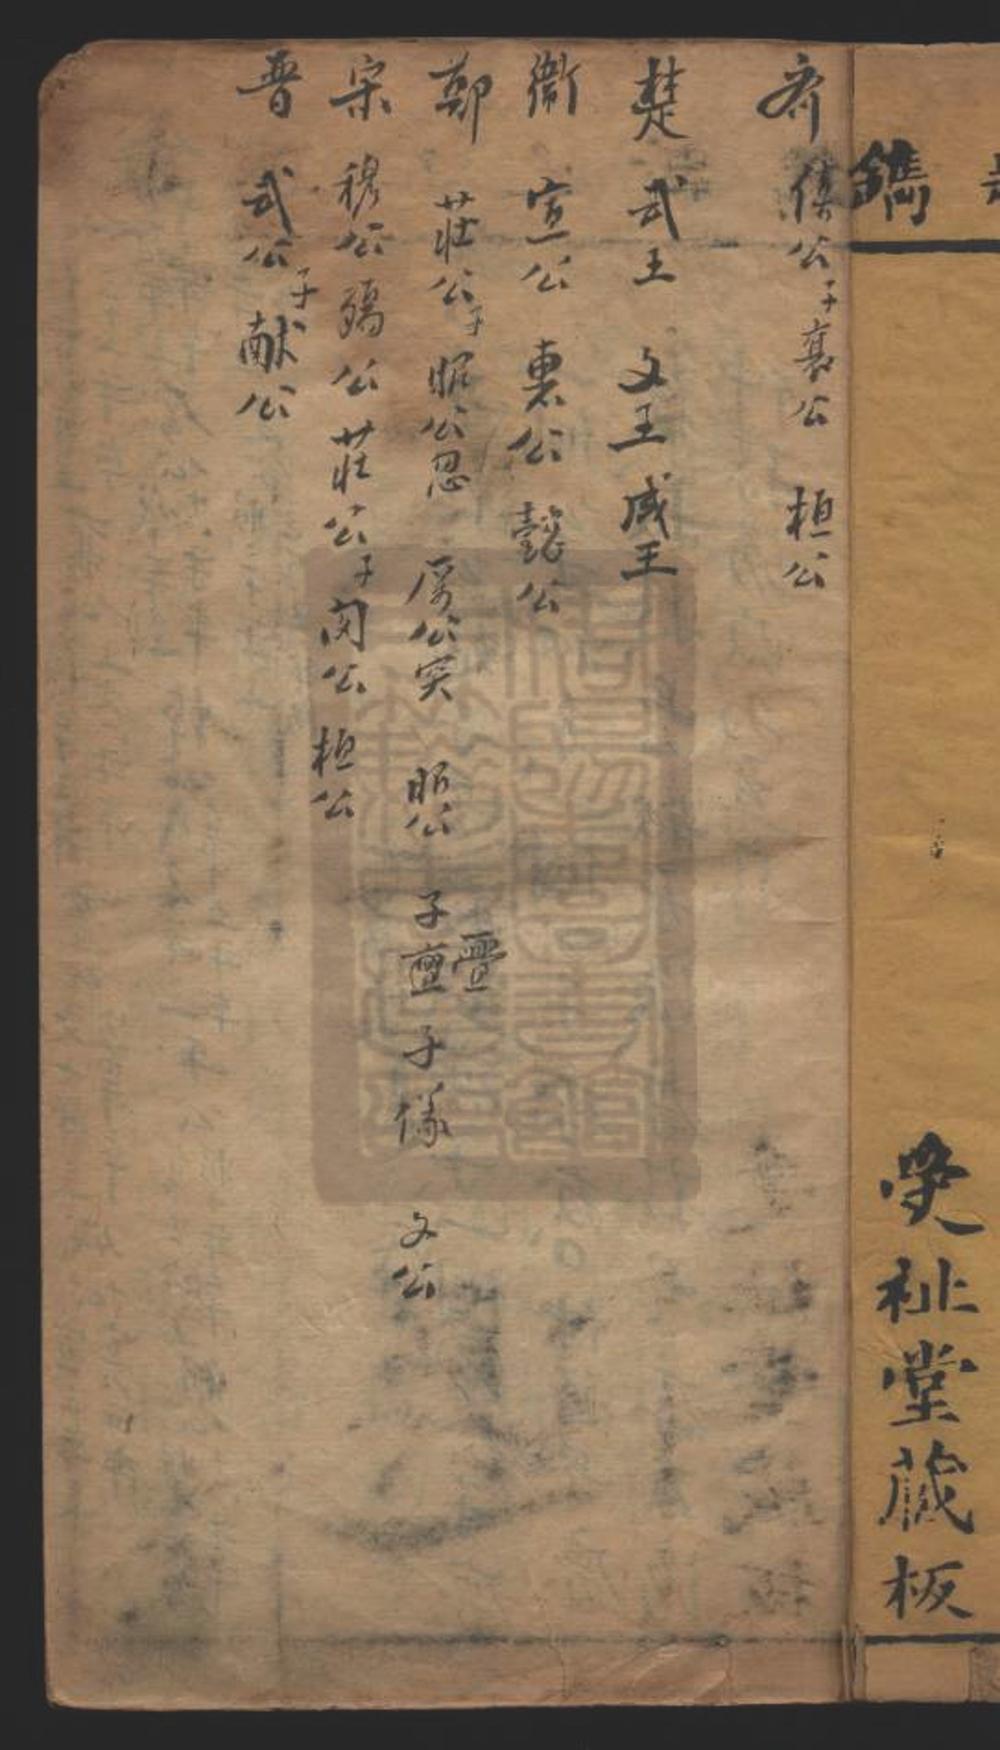 鐫
受祉堂蔵板
齐 僖公 子襄公 桓公
楚 武王 文王 成王
衞 宣公 惠公 懿公
鄭 莊公 子昭公忽 厲公突 昭公 子亹 亹 子儀 文公
宋 穆公 殤公 莊公 子闵公 桓公
晋 武公 子献公